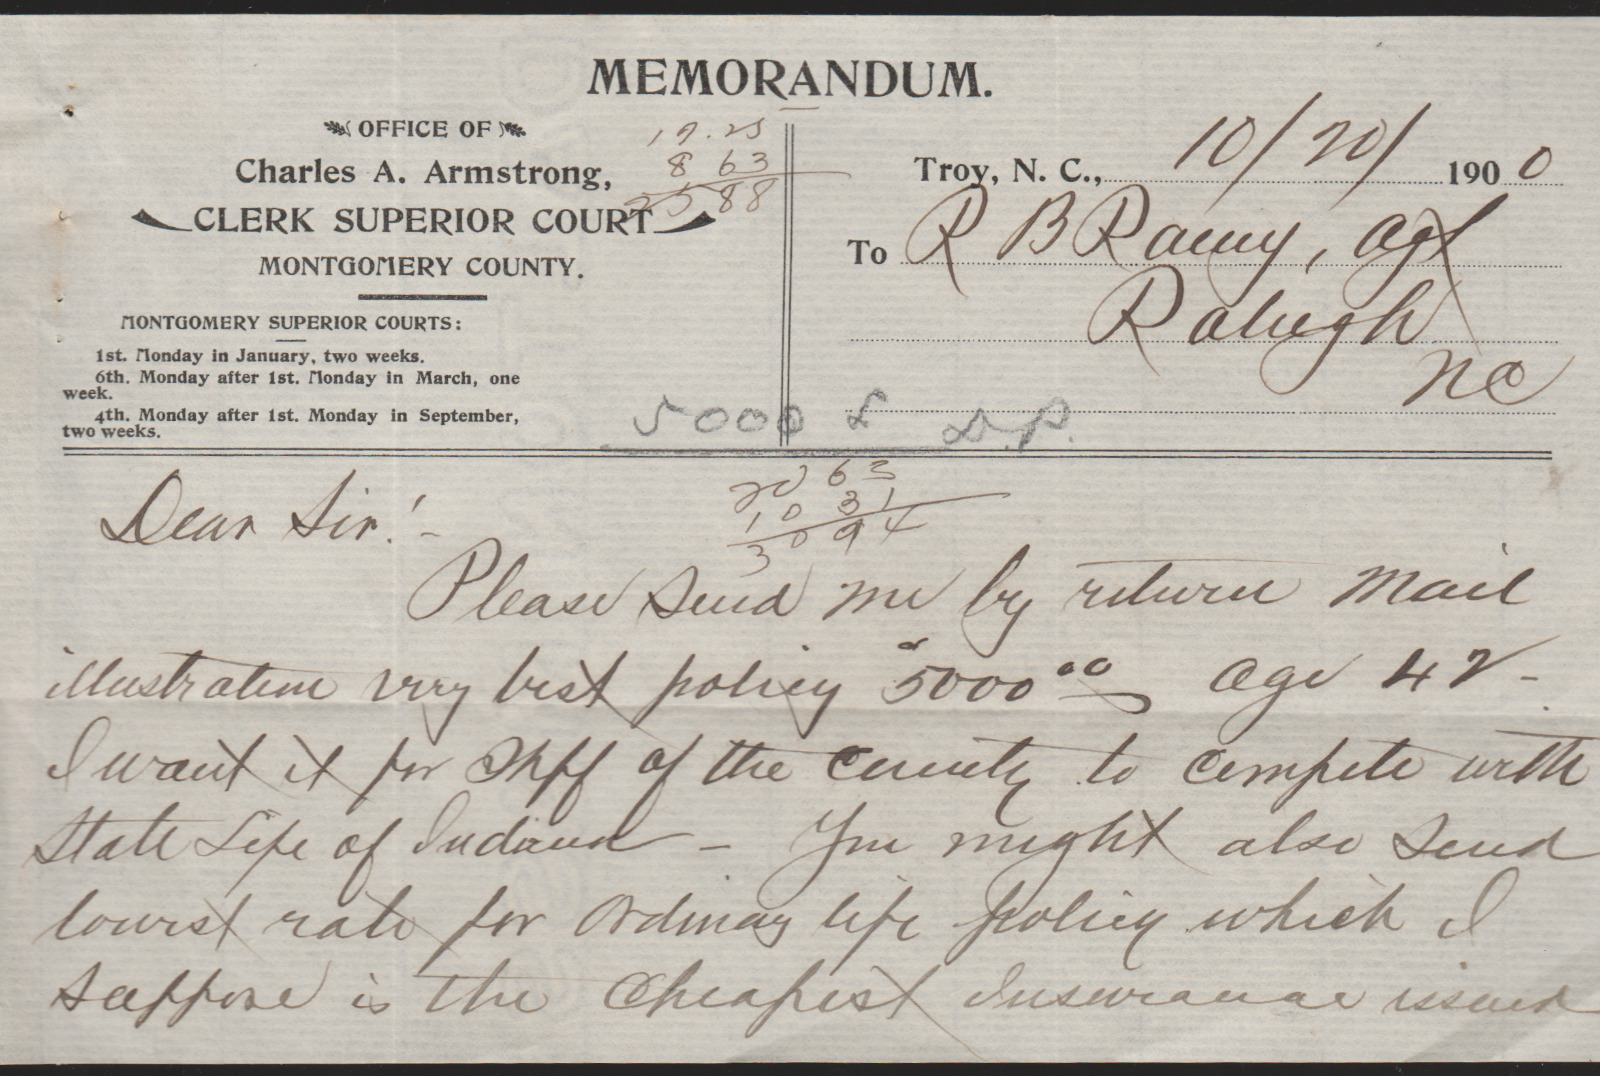 MEMORANDUM.
OFFICE OF
Charles A. Armstrong,
CLERK SUPERIOR COURT
MONTGOMERY COUNTY.
MONTGOMERY SUPERIOR COURTS:
1st. Monday in January, two weeks.
6th. Monday after 1st. Monday in March, one
week.
4th. Monday after 1st. Monday in September,
two weeks.
17.25
8 63
25 88
Troy, N. C., 10/20/ 1900
To R B Raney, agt
Raleigh
NC
5000 L D.P.
20 63
10 31
30 94
Dear Sir!-
Please send me by return mail
illustration very best policy 5000 00 age 42-
I want it for Shff of the County to compete with
State Life of Indiana - You might also send
lowest rate for Ordinay life policy which I
suppose is the Cheapest Insurance issued